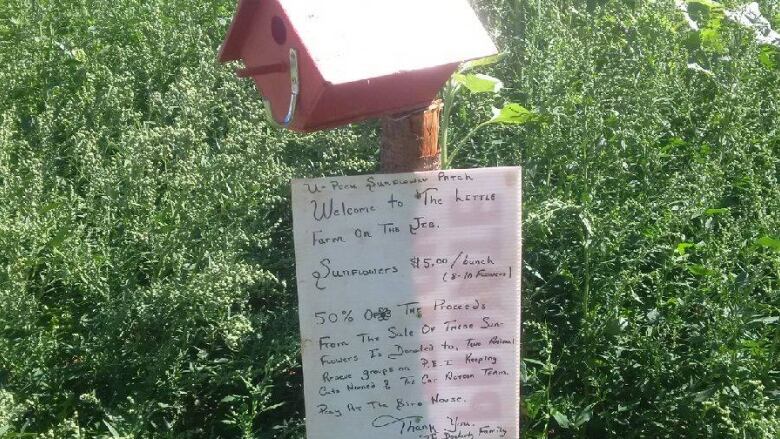 U-Pick Sunflower Patch
Welcome to The Little
Farm On The
Sunflowers $5.00/bunch
(8-10 Flowers)
50% Of The Proceeds
From The Sale Of These Sun-
flowers Is Donated to, Two Animal
Rescue groups on P.E.I Keeping
Cats Homed & The Cat Action Team.
Pay At The Bird House.
Thank You.
Family